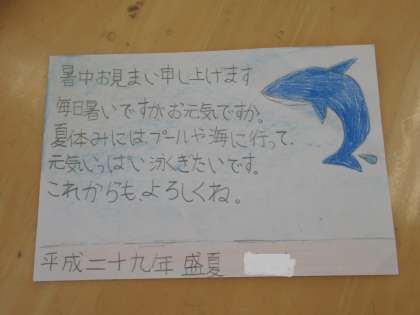 暑中お見まい申し上げます
毎日暑いですが、お元気ですか。
夏休みには、プールや海に行って、
元気いっぱい泳ぎたいです。
これからも、よろしくね。
平成二十九年 盛夏